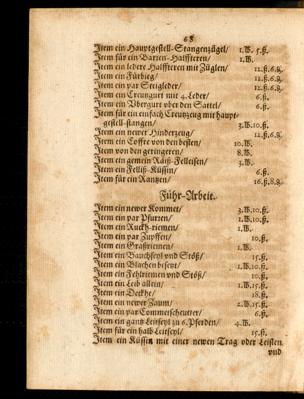 68
Item ein Hauptgestell-Stangenzügel/ 1.W. 5.ß.
Item für ein Barren-Halfftern/ 1.W.
Item ein ledere Halfftern mit Züglen/ 12.ß.6.₰.
Item ein Fürbieg/ 12.ß.6.₰.
Item ein par Steigleder/ 12.ß.6.₰.
Item ein Creutzgurt mit 4. Leder/ 6.ß.
Item ein Übergurt über den Sattel/ 6.ß.
Item für ein einfach Creutzzeug mit haupt-
gestell-stangen/ 3.W.10.ß.
Item ein newer Hinderzeug/ 12.ß.6.₰.
Item ein Coffre von den besten/ 10.W.
Item von den geringeren/ 8.W.
Item ein gemein Raiß-Felleisen/ 3.W.
Item ein Felliß-Küssin/ 6.ß.
Item für ein Rantzen/ 16.ß.8.₰.
Führ-Arbeit.
Item ein newer Kommet/ 3.W.10.ß.
Item ein par 1.W.10.ß.
Item ein Ruckh-riemen/ 1.W.
Item ein par 10.ß.
Item ein 1.W.
Item ein Bauchseyl vnd Stöß/ 15.ß.
Item ein 1.W.
Item ein vnd Stöß/ 10.ß.
Item ein Leib allein/ 1.W.15.ß.
Item ein Deckhe/ 18.ß.
Item ein newer Zaum/ 2.W.15.ß.
Item ein par 6.ß.
Item ein gantz Leitseyl zu 6. Pferden/ 4.W.
Item für ein halb Leitseyl/ 15.ß.
Item ein Küssin mit einer newen Trag oder Leisten
vnd